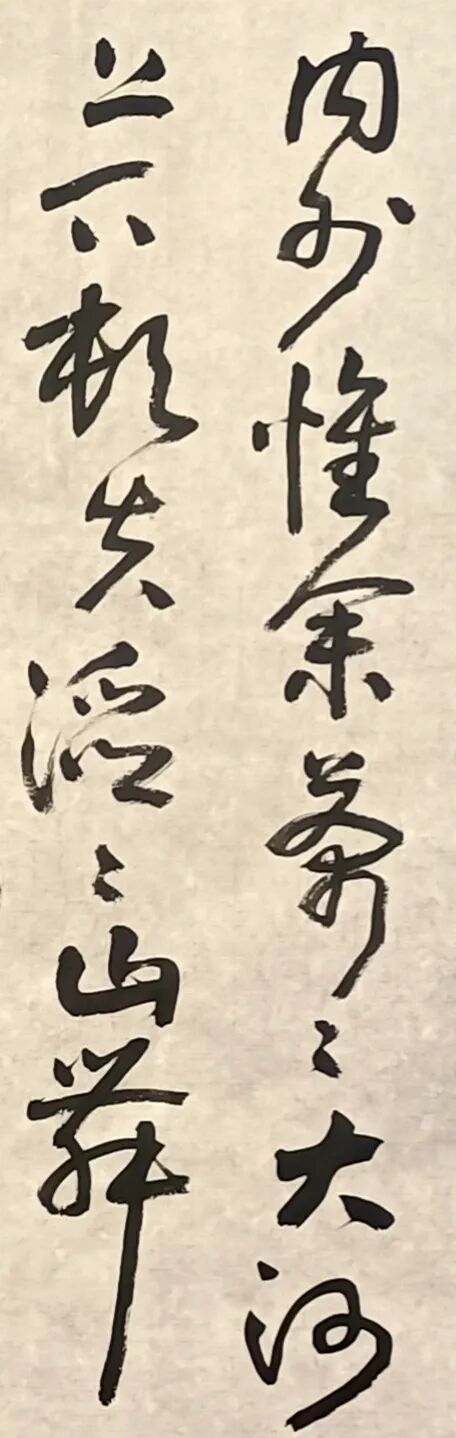 内外惟余莽々大河
上下顿失滔々山舞